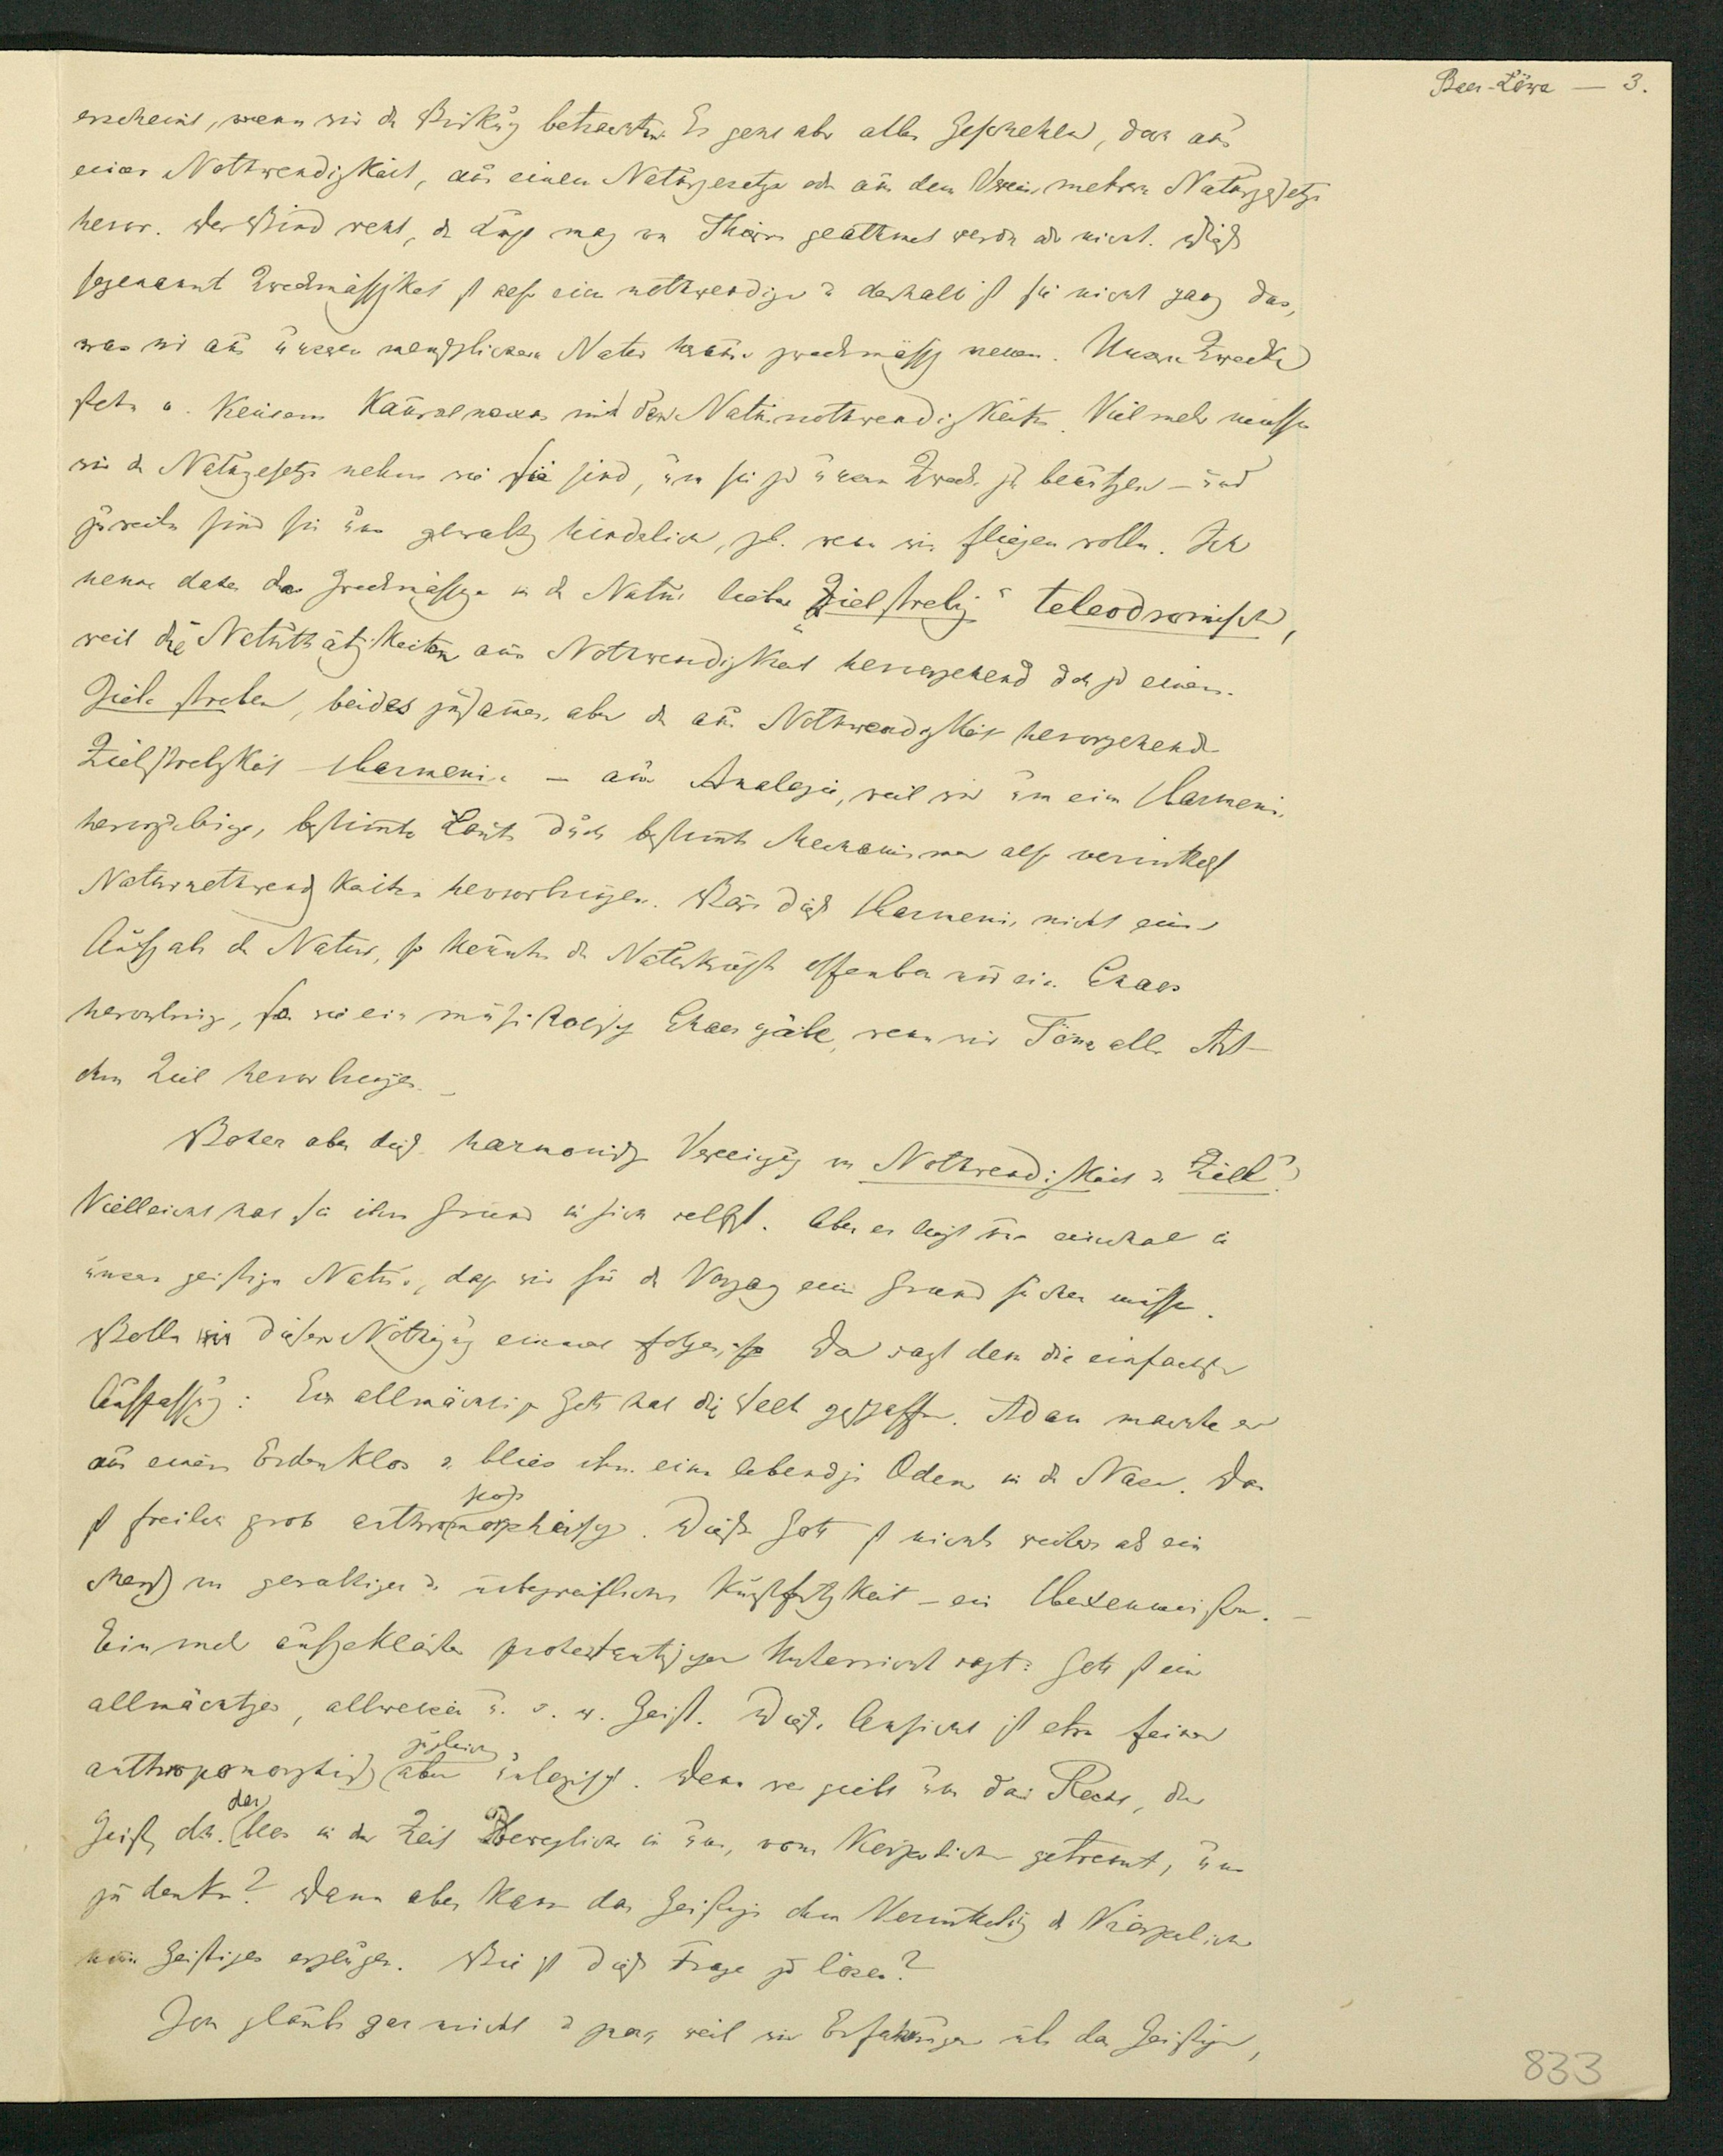 Baer-Löwe — 3.
erscheint, wenn wir d. Wirkung betrachten. Es geht aber alles Geschehen, doch aus
einer Nothwendigkeit, aus einem Naturgesetze oder aus dem Verein mehrerer Naturgesetze
hervor. Der Wind weht, d. Luft mag von Thieren geathmet werden oder nicht. Diese
sogenannte Zweckmässigkeit ist also eine nothwendige u. deshalb ist sie nicht ganz das,
was wir aus unserer menschlichen Natur heraus zweckmässig nennen. Unsere Zwecke
stehn in keinem Kausalnexus mit den Naturnothwendigkeiten. Vielmehr müssen
wir d. Naturgesetze nehmen wie sie sind, um sie zu unsern Zwecken zu benützen – und
zuweilen sind sie uns gewaltig hinderlich, zb. wenn wir fliegen wollen. Ich
nenne daher das Zweckmässige in d. Natur lieber „Zielstrebig“ teleodromisch,
weil die Naturthätigkeiten aus Nothwendigkeit hervorgehend doch zu einem
Ziele streben, beides zusammen aber d. aus Nothwendigkeit hervorgehende
Zielstrebigkeit Harmonie – aus Analogie, weil wir um eine Harmonie
hervorzubringen, bestimmte Laute durch bestimmte Mechanismen also vermittelst
Naturnothwendigkeiten hervorbringen. Wäre diese Harmonie nicht eine
Aufgabe der Natur, so könnten die Naturkräfte offenbar nur ein Chaos
hervorbringen, so wie ein musikalisches Chaos gäbe, wenn wir Töne aller Art
ohne Ziel hervorbringen. –
Woher aber diese harmonische Vereinigung von Nothwendigkeit u. Ziel?
Vielleicht hat sie ihren Grund in sich selbst. Aber es liegt nun einmal in
unserer geistigen Natur, daß wir für d. Vorgang einen Grund suchen müssen.
Wollen wir dieser Nöthigung einmal folgen, so Da sagt denn die einfachste
Auffassung: Ein allmächtiger Gott hat die Welt geschaffen. Adam machte er
aus einem Erdenklos u. blies ihm einen lebendigen Odem in d. Nase. Das
ist freilich grob anthropomorphisch. Dieser Gott ist nichts weiter als ein
Mensch von gewaltiger u. unbegreiflicher Kunstfertigkeit – ein Hexenmeister. –
Ein mehr aufgeklärter protestantischer Unterricht sagt: Gott ist ein
allmächtiger, allweiser u. s. w. Geist. Diese Ansicht ist etwa feiner
anthropomorphisch aber zugleich unlogisch. Denn wer giebt uns das Recht, den
Geist, dh. das blos in der Zeit Bewegliche in uns, vom Körperlichen getrennt, uns
zu denken? Dann aber kann das Geistige ohne Vermittelung d. Körperlichen
nur Geistiges erzeugen. Wie ist diese Frage zu lösen?
Ich glaube gar nicht u. zwar, weil wir Erfahrungen über das Geistige,
833